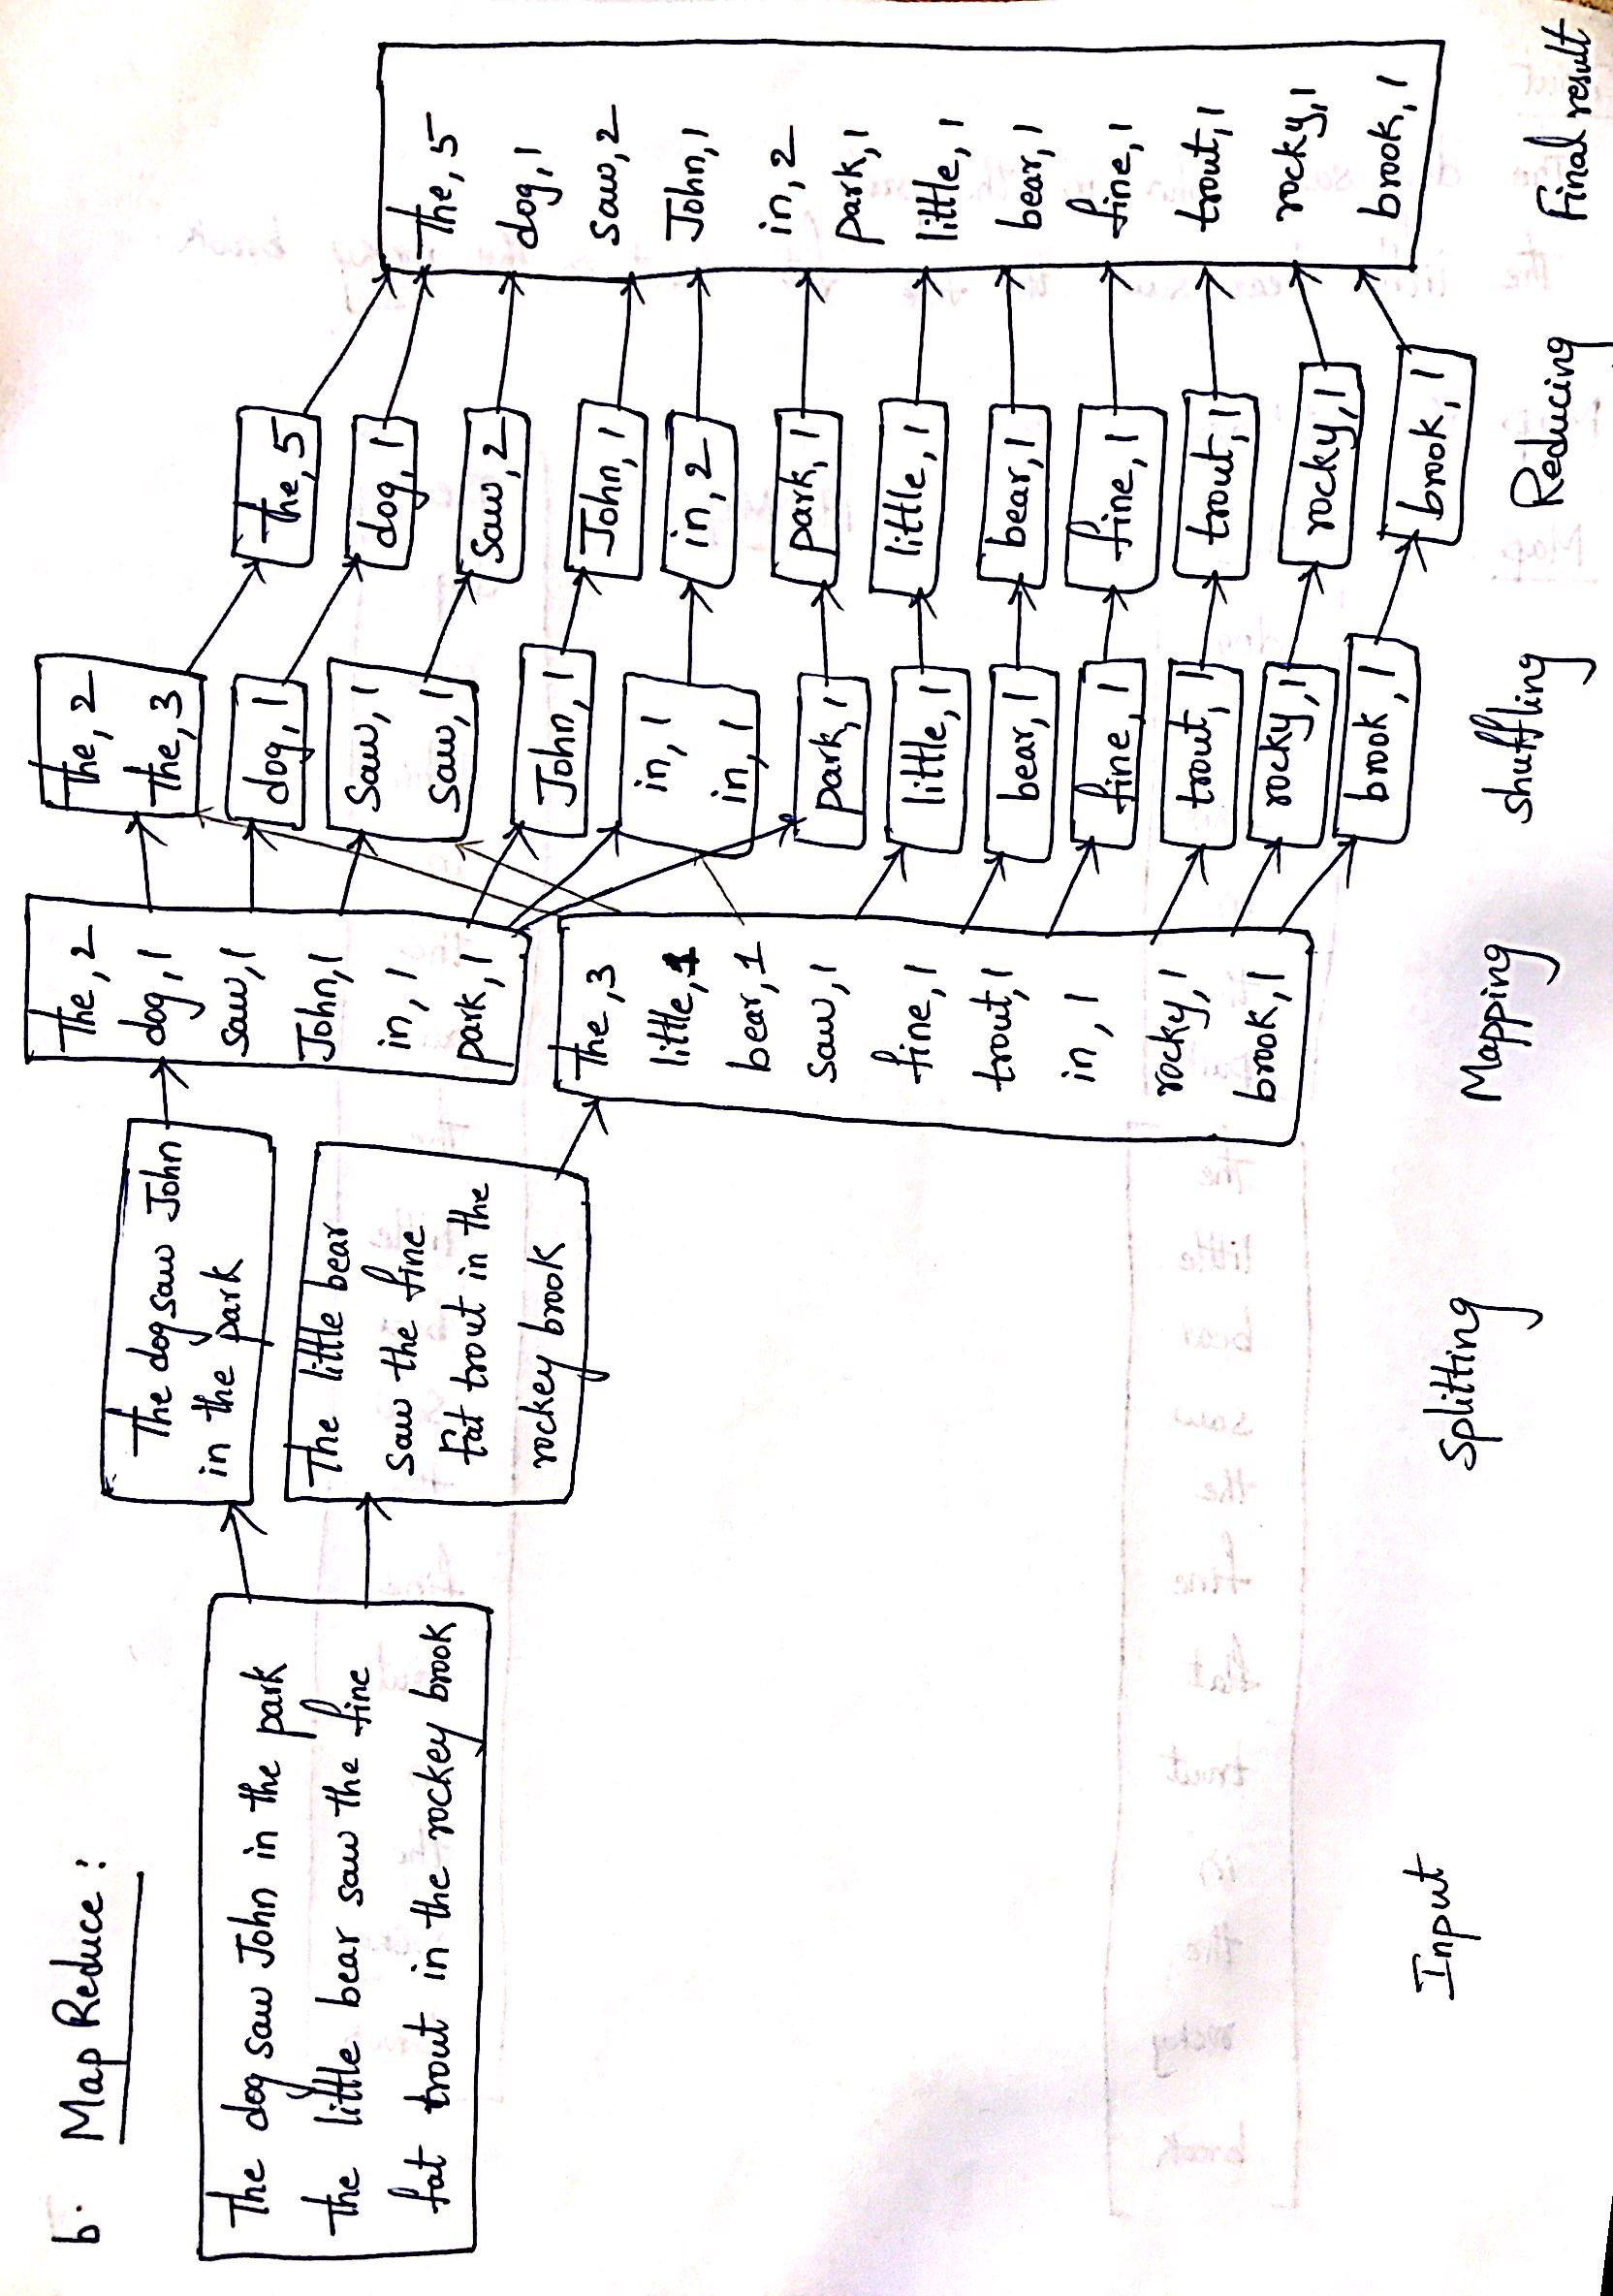 b. Map Reduce :
The dog saw John in the park
the little bear saw the fine
fat trout in the rockey brook
The dog saw John
in the park
The little bear
saw the fine
fat trout in the
rockey brook
The, 2
dog, 1
saw, 1
John, 1
in, 1
park, 1
The, 3
little, 1
bear, 1
saw, 1
fine, 1
trout, 1
in, 1
rocky, 1
brook, 1
The, 2
the, 3
dog, 1
Saw, 1
saw, 1
John, 1
in, 1
in, 1
park, 1
little, 1
bear, 1
fine, 1
trout, 1
rocky, 1
brook, 1
the, 5
dog, 1
Saw, 2
John, 1
in, 2
park, 1
little, 1
bear, 1
fine, 1
trout, 1
rocky, 1
brook, 1
The, 5
dog, 1
saw, 2
John, 1
in, 2
park, 1
little, 1
bear, 1
fine, 1
trout, 1
rocky, 1
brook, 1
Input
Splitting
Mapping
Shuffling
Reducing
Final result